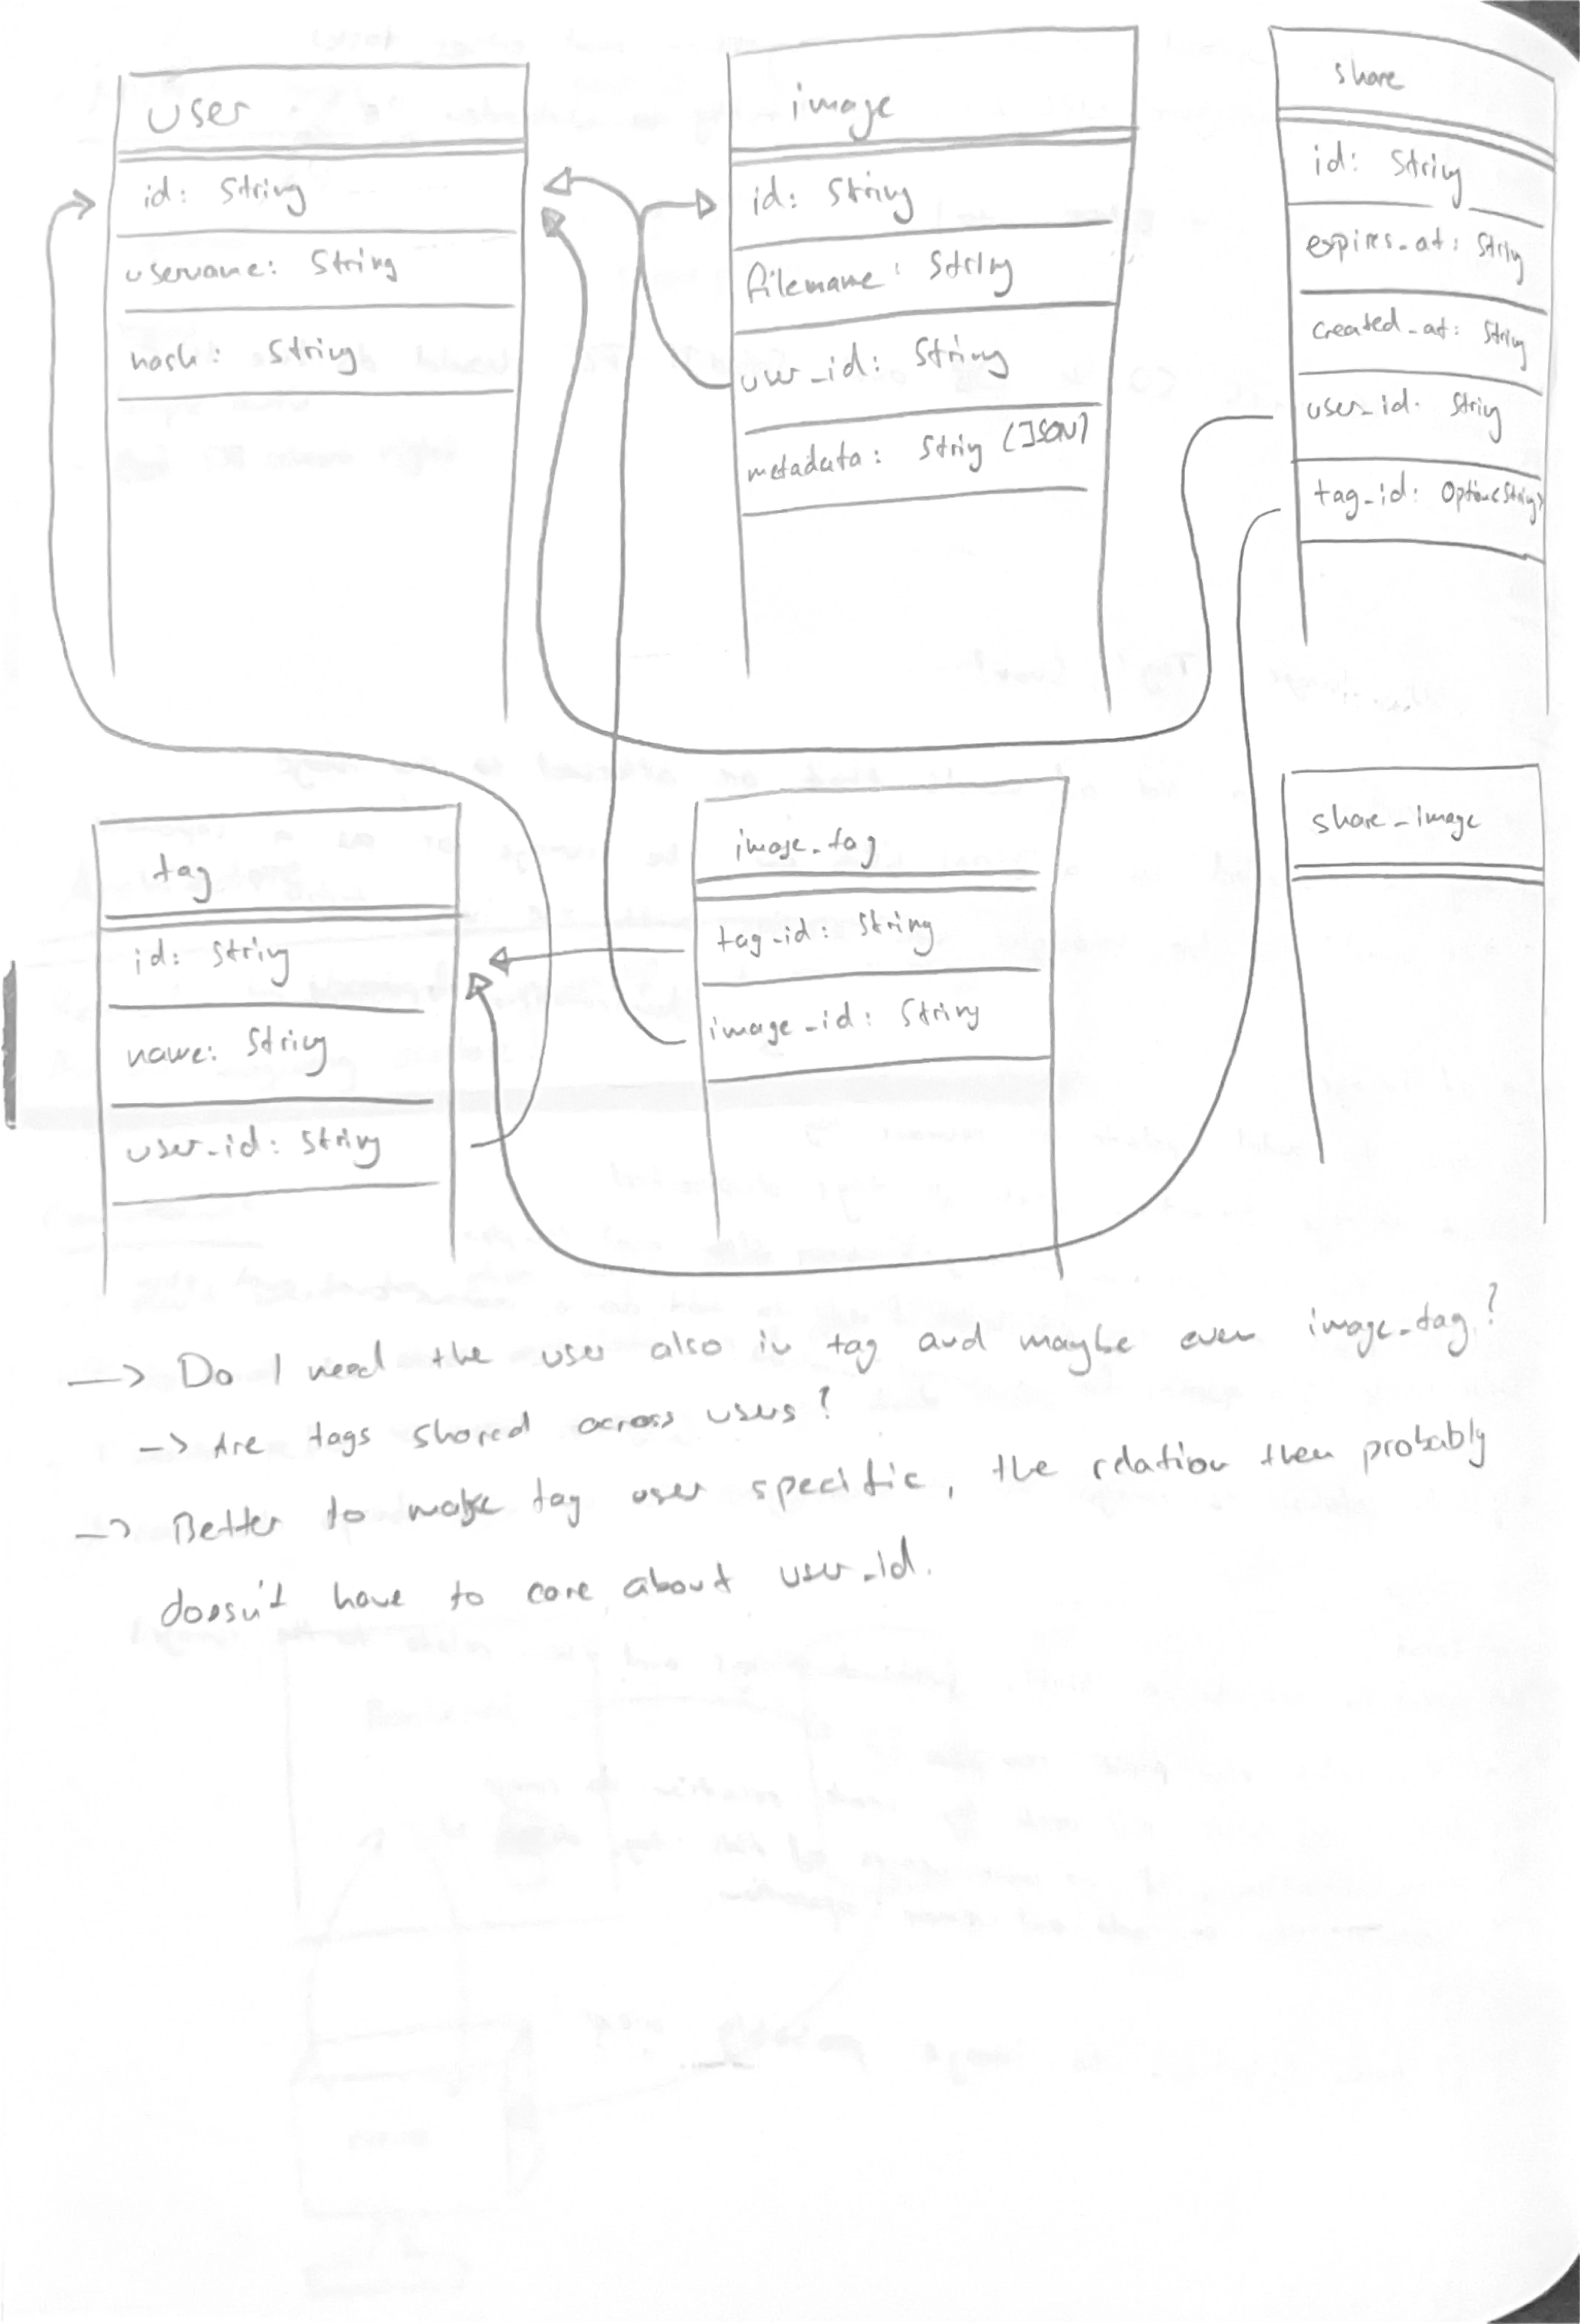 user
id: String
username: String
hash: String
image
id: String
filename: String
user_id: String
metadata: String (JSON)
share
id: String
expires_at: String
created_at: String
user_id: String
tag_id: Option<String>
tag
id: String
name: String
user_id: String
image_tag
tag_id: String
image_id: String
share_image
—> Do I need the user also in tag and maybe even image_tag?
—> Are tags shared across users?
—> Better to make tag user specific, the relation then probably
doesn't have to care about user_id.